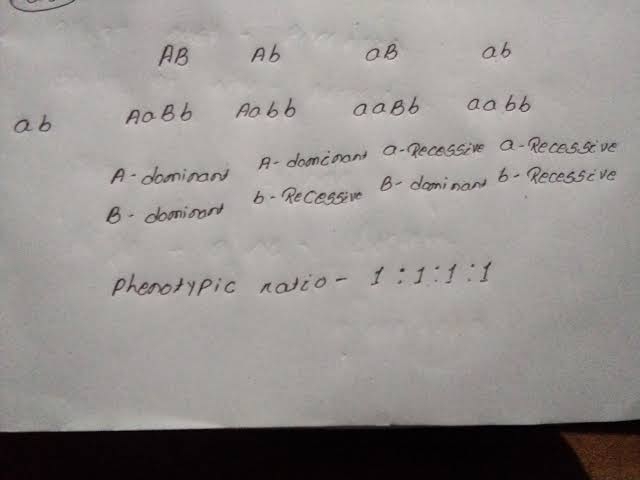 AB Ab aB ab
ab AaBb Aabb aaBb aabb
A-dominant A-dominant a-Recessive a-Recessive
B-dominant b-Recessive B-dominant b-Recessive
Phenotypic ratio- 1:1:1:1